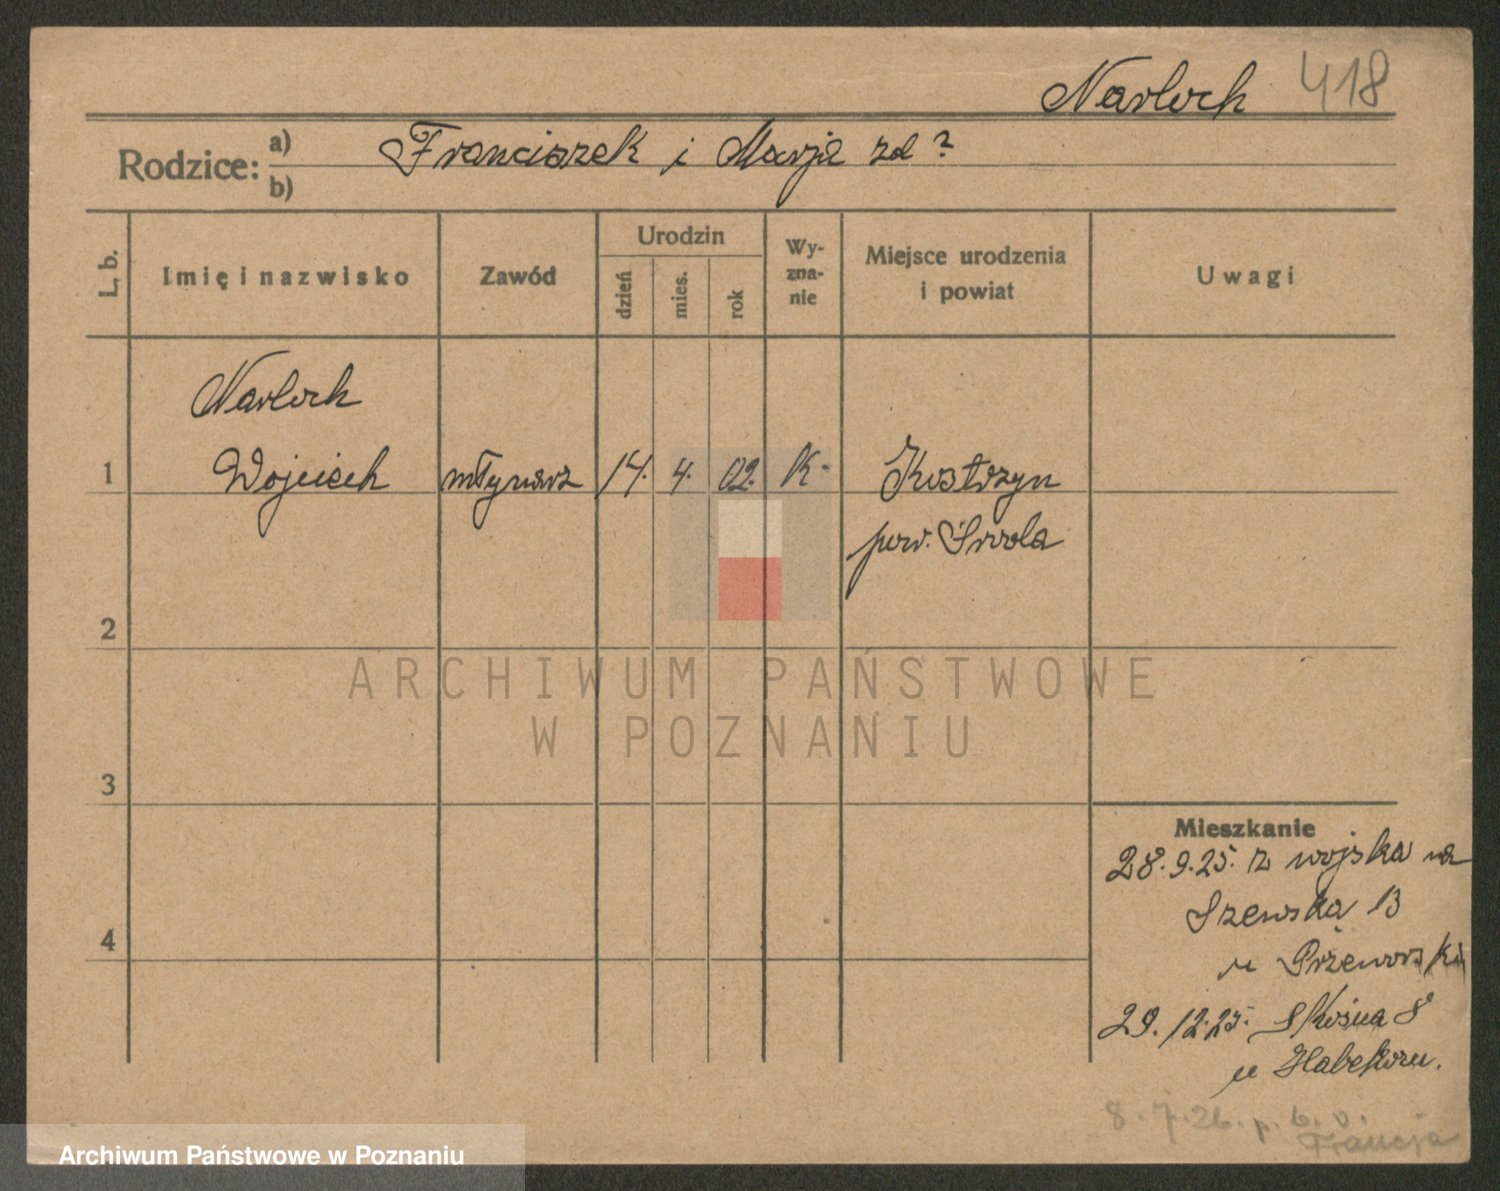 Narloch 418
Rodzice: a) Franciszek i Marja zd ?
b)
L. b.
Imię i nazwisko
Zawód
Urodzin
dzień
mies.
rok
Wy-
zna-
nie
Miejsce urodzenia
i powiat
Uwagi
Narloch
1 Wojciech młynarz 14. 4. 02. K. Kostrzyn
pow. Środa
2
ARCHIWUM PAŃSTWOWE
W POZNANIU
3
Mieszkanie
28.9.25. z wojska na
Szewską 13
4 u Przeworski
29.12.25. Skośna 8
u
8.7.26. p. b. v.
Francja
Archiwum Państwowe w Poznaniu